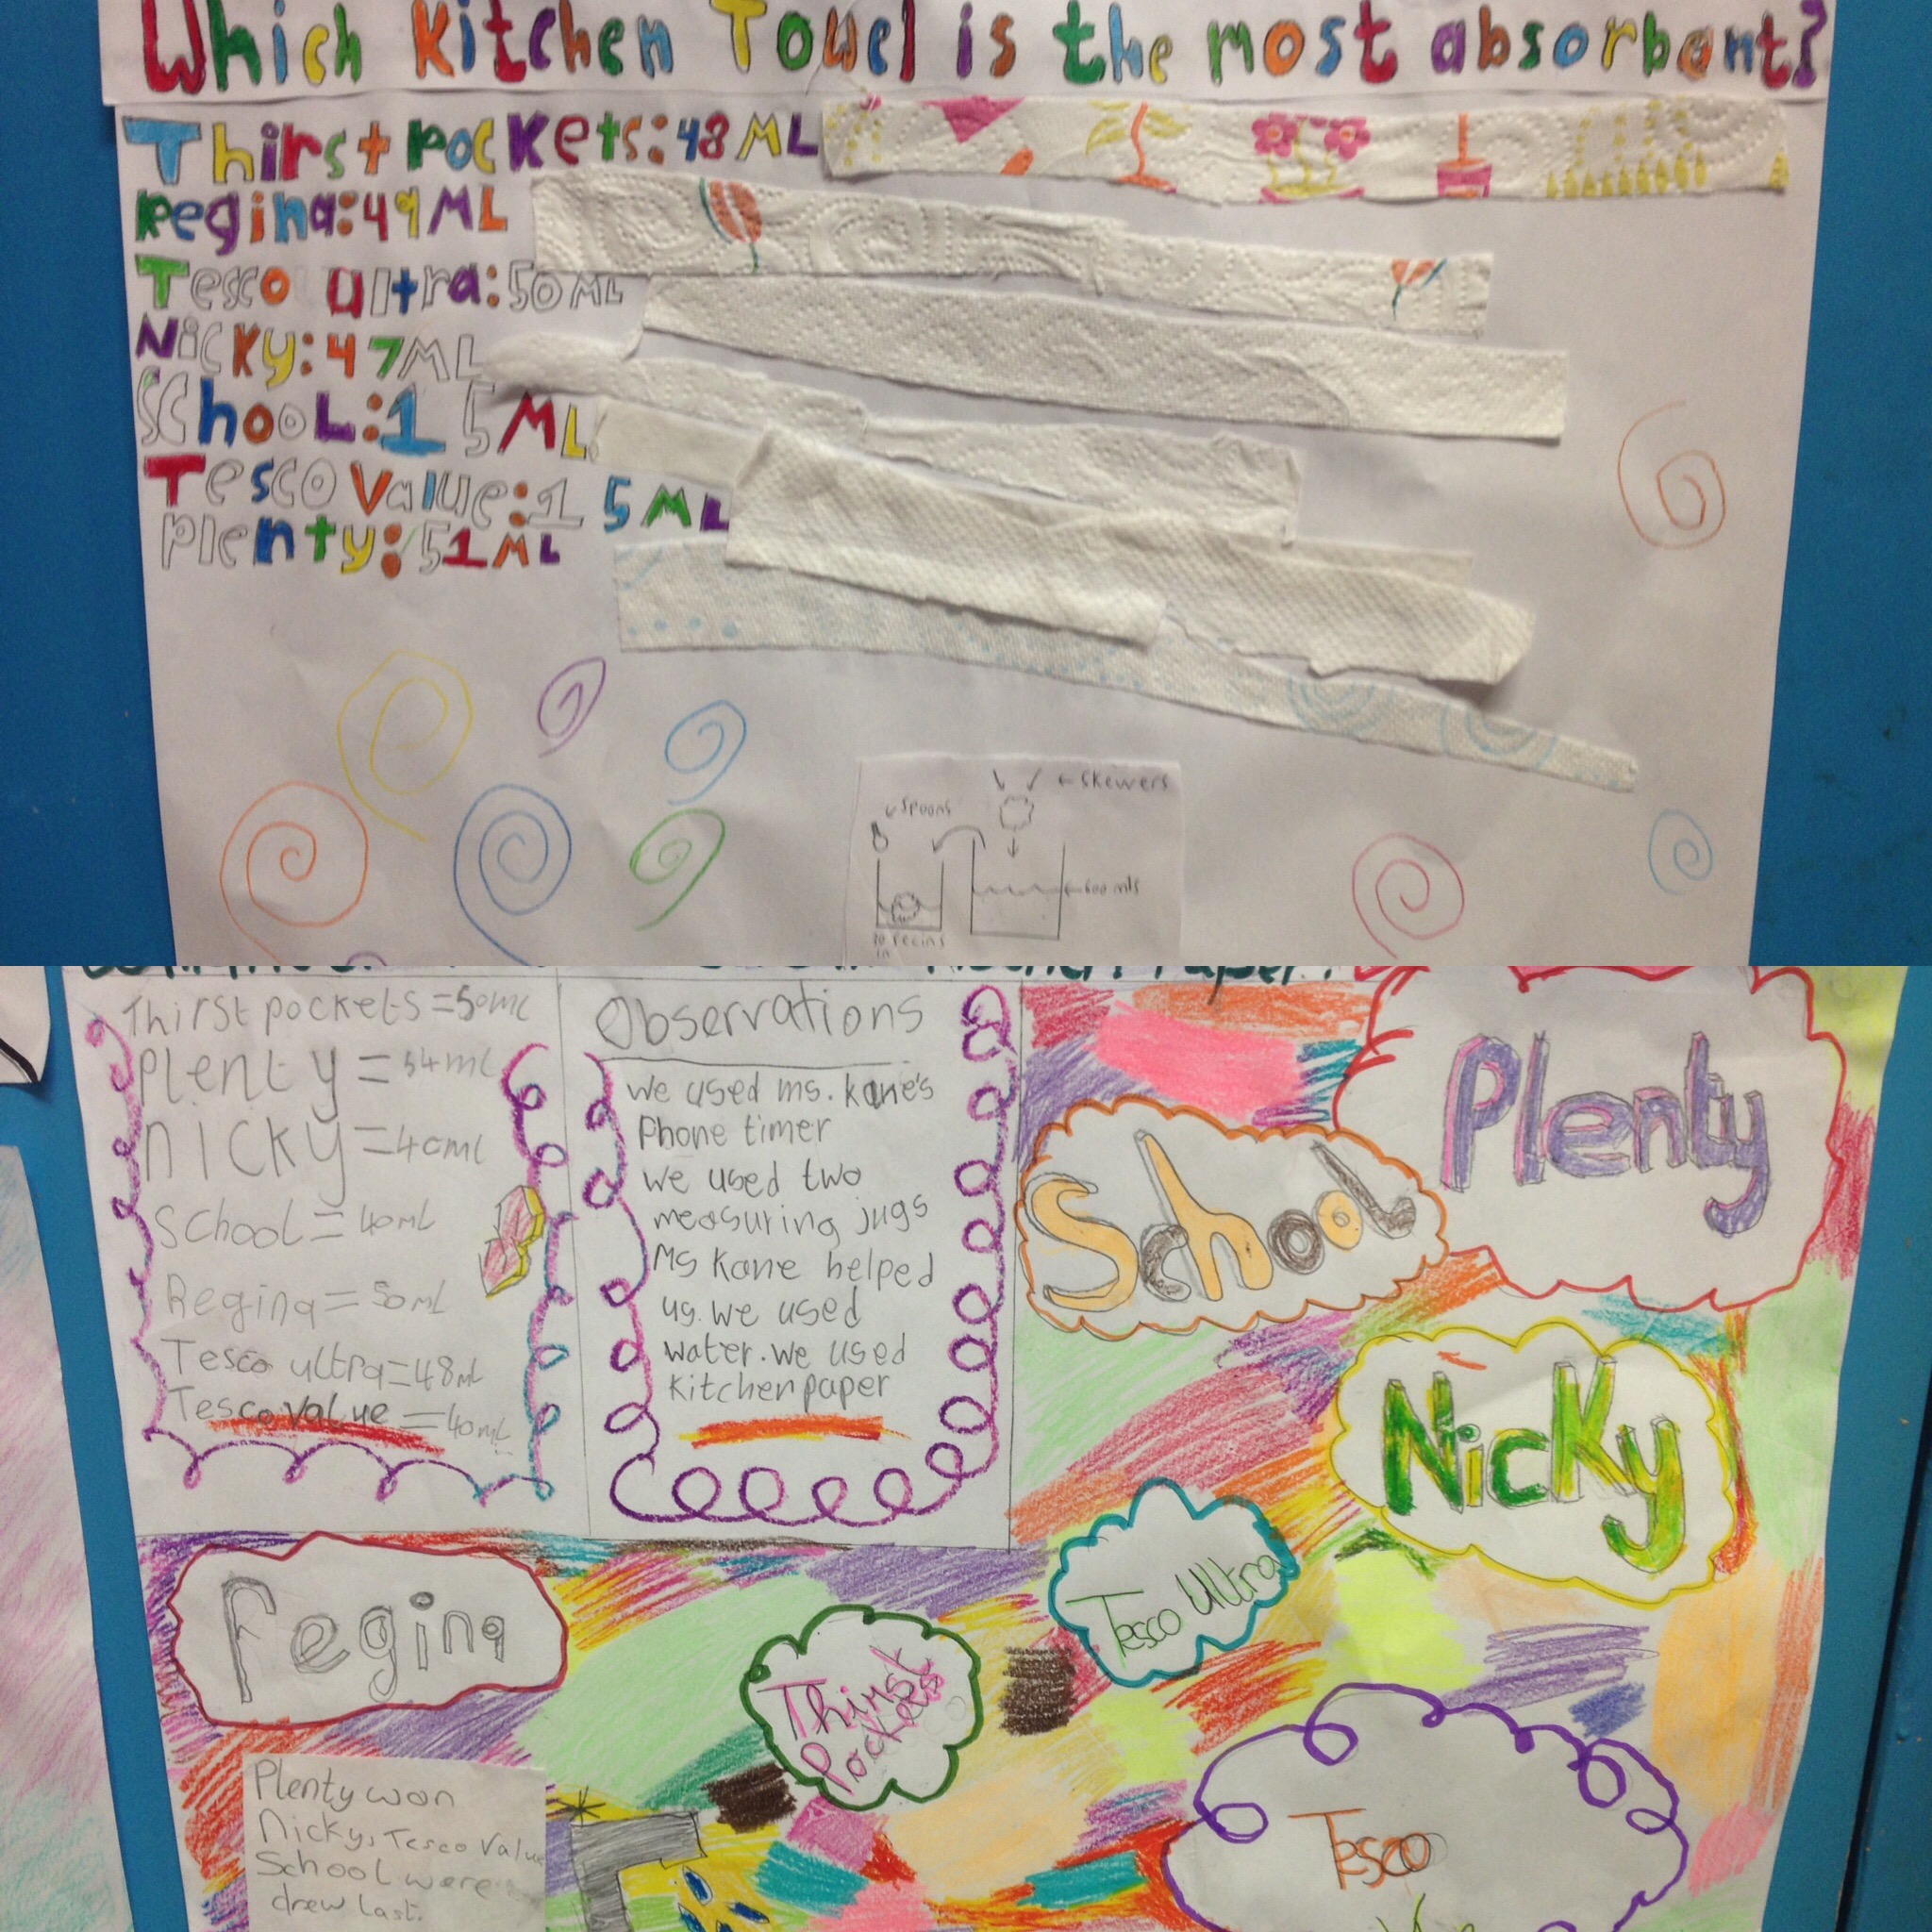 Which kitchen Towel is the most absorbant?
Thirst pockets:48ML
Regina:49ML
Tesco Ultra:50ML
Nicky:47ML
School:15ML
Tesco Value:15ML
Plenty:51ML
skewers
spoons
600 mls
in
Thirst pockets=50ml
Plenty=54ml
Nicky=40ml
School=40ml
Regina=50ml
Tesco ultra=48ml
Tesco value=40ml
Observations
We used ms. kane's
Phone timer
We used two
measuring jugs
Ms Kane helped
us. we used
water. we used
kitchen paper
Plenty
School
Nicky
Tesco Ultra
Regina
Thirst
Pockets
Tesco
Plenty won
Nicky, Tesco Value
School were
drew last.